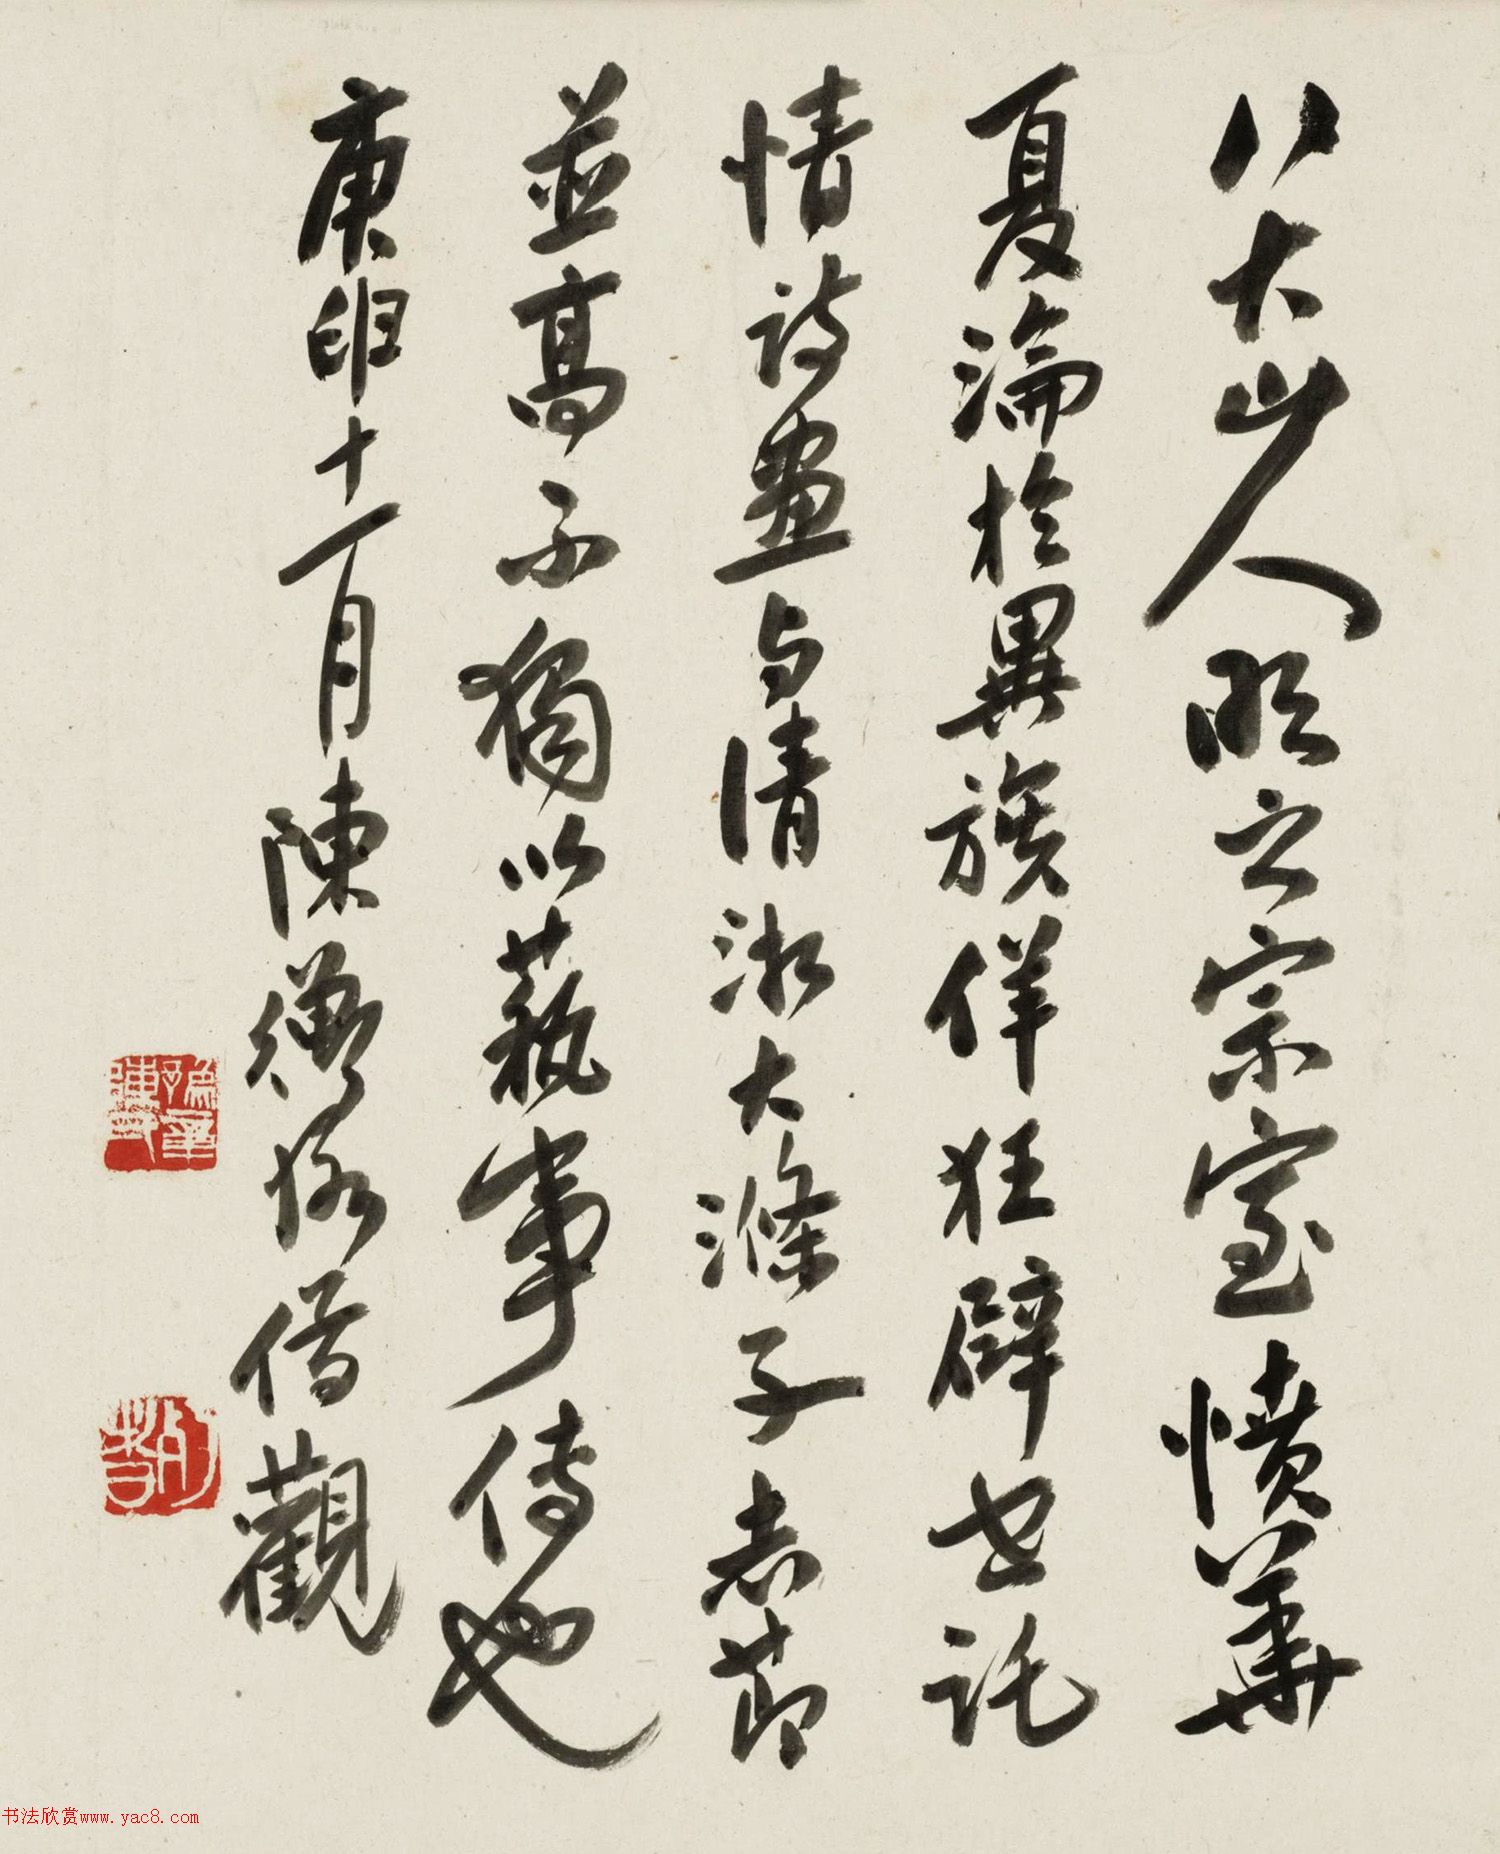 八大山人明之宗室憤華
夏淪於異族佯狂辟世託
情詩畫与清湘大滌子志節
並高不獨以藝事傳也
庚申十一月陳衡恪借觀
书法欣赏www.yac8.com